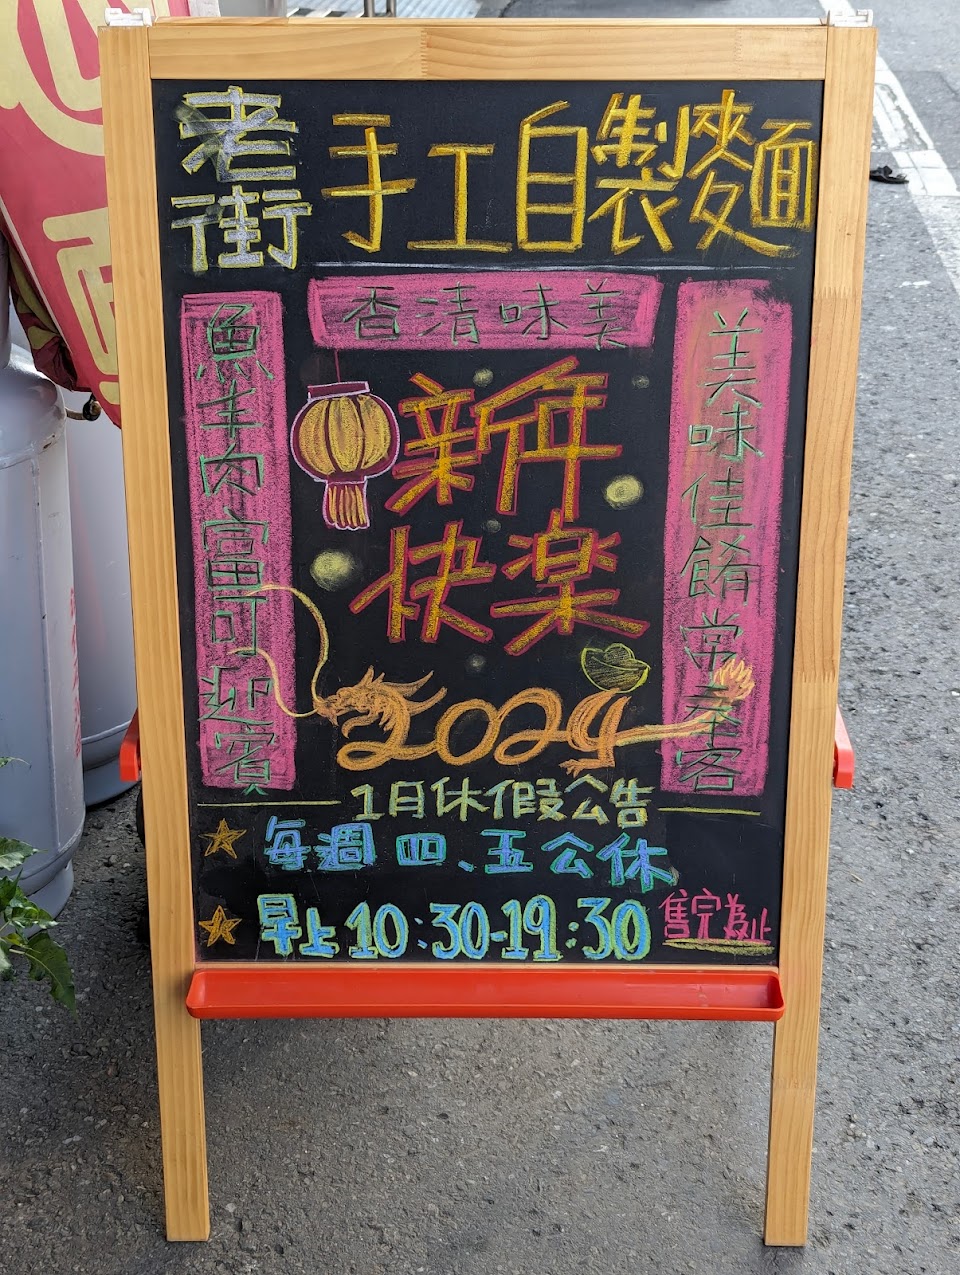 老街
手工自製麵
香清味美
美味佳餚常季客
魚羊肉富可迎賓
新年
快楽
2024
1月休假公告
每週四、五公休
早上10:30-19:30
售完為止